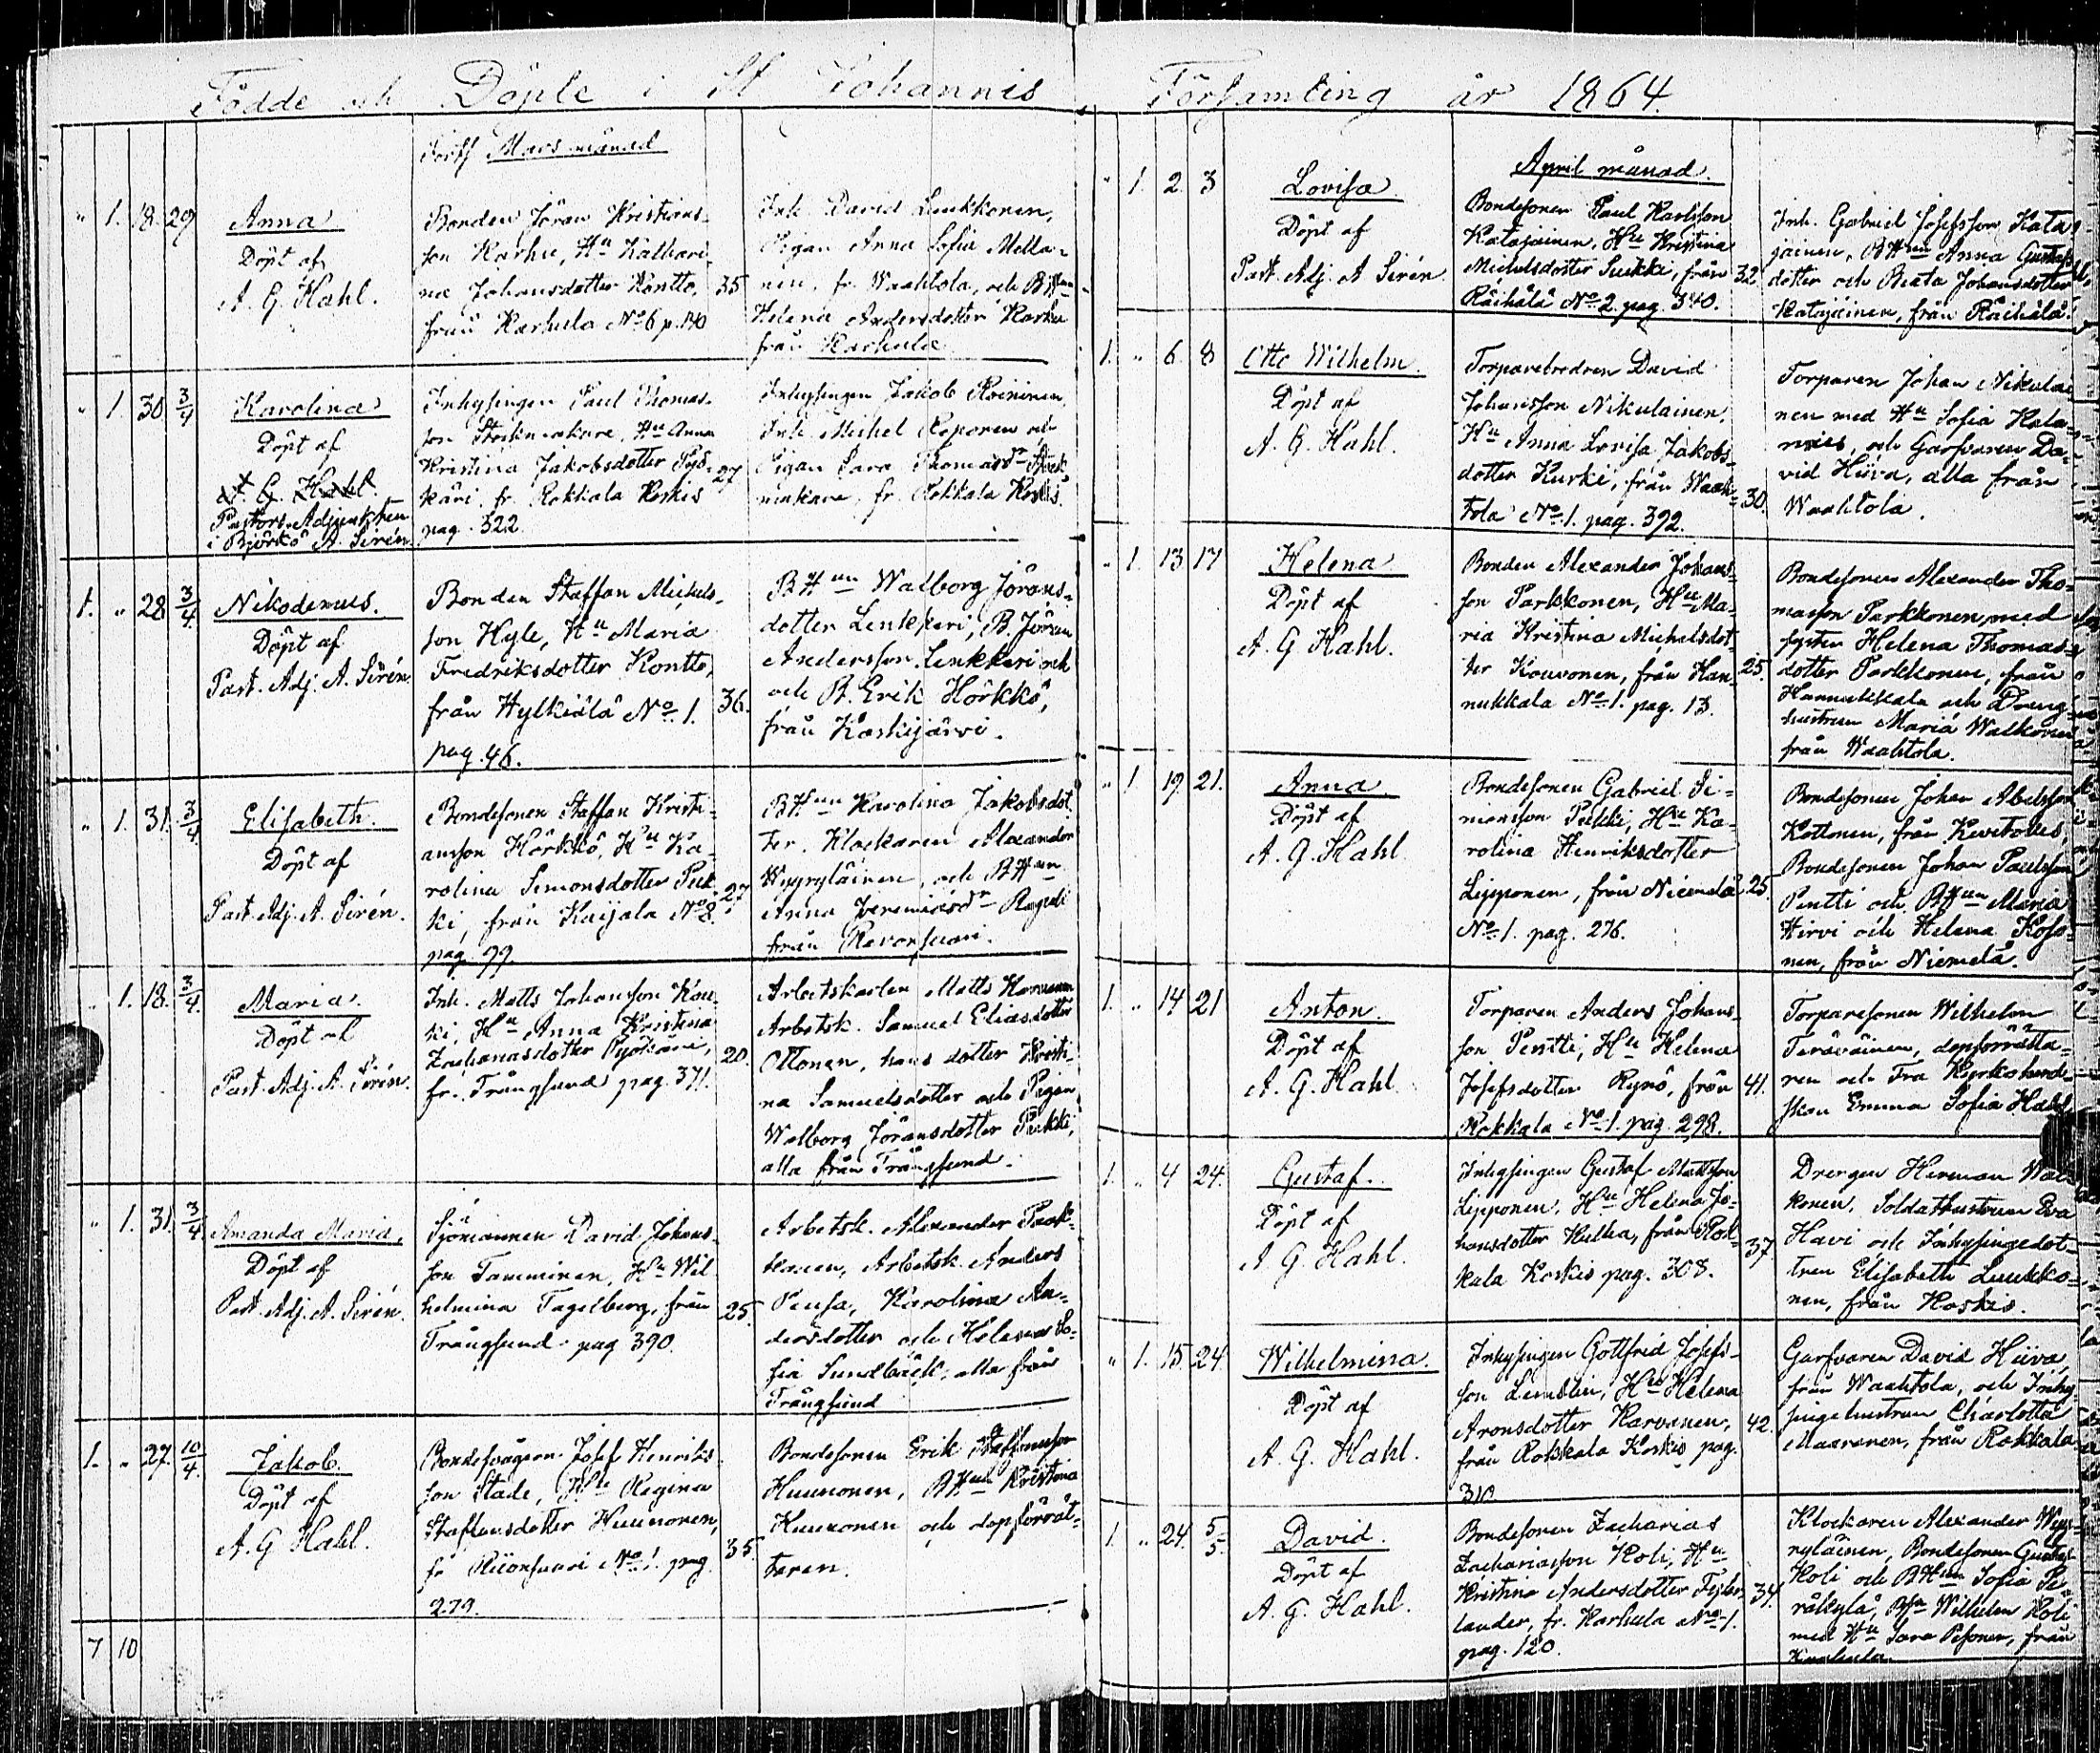 Födde och Döpte i St Johannis Församling år 1864.
Forts Mars månad
" 1. 18. 29
Anna
Döpt af
A. G. Hahl.
Bonden Jöran Kristians-
son Karhu, Hu Kathari-
na Johansdotter Kontto,
från Karhula No 6 p. 140
35
Inh. David Luukkonen,
Pigan Anna Sofia Mella-
nen, fr. Waahtola, och BHun
Helena Andersdotter Karhu
från Karhula
" 1 30 3/4
Karolina
Döpt af
A. G. Hahl.
Pastors-Adjunkten
i Björkö A. Sirén
Inhysingen Paul Thomas-
son Stickmakare, Hu Anna
Kristina Jakobsdotter Pyö-
käri, fr. Rokkala Koskis
pag. 322
27
Inhysingen Jakob Roininen,
Inh. Michel Reponen och
Pigan Sara Thomasdr Stick-
makare, fr. Rokkala Koskis.
1. " 28 3/4.
Nikodemus.
Döpt af
Past. Adj. A. Sirén
Bonden Staffan Michels-
son Hyle, Hu Maria
Fredriksdotter Kontto,
från Hylkiälä No 1.
pag. 46.
36.
BHun Walborg Jörans-
dotter Lenkkeri, B. Jöran
Andersson Lenkkeri och
och B. Erik Hörkkö,
från Kaskijärvi.
" 1. 31. 3/4.
Elisabeth.
Döpt af
Past. Adj. A. Sirén.
Bondesonen Staffan Kristi-
ansson Hörkkö, Hu Ka-
rolina Simonsdotter Puk-
ki, från Kaijala No 8.
pag. 99.
27
BHun Karolina Jakobsdot-
ter, Klockaren Alexander
Wyyryläinen, och BHun
Anna Jeremiasdr
från Revonsaari.
" 1. 18. 3/4.
Maria.
Döpt af
Past. Adj. A. Sirén.
Inh. Matts Johansson Kou-
ki, Hu Anna Kristina
Zachariasdotter Pyökäri,
fr. Trångsund pag. 371.
20.
Arbetskarlen Matts
Arbetsk. Samuel Eliasdotter
Ottonen, hans dotter Kristi-
na Samuelsdotter och Pigan
Walborg Jöransdotter Pukki,
alla från Trångsund.
" 1. 31. 3/4
Amanda Maria.
Döpt af
Past. Adj. A. Sirén.
Sjömannen David Johans-
son Tamminen, Hu Wil-
helmina Fagelberg, från
Trångsund pag 390.
25.
Arbetsk. Alexander Park-
konen, Arbetsk. Anders
Peusa, Karolina An-
dersdotter och Helena So-
fia Sundbäck, alla från
Trångsund
1. " 27. 10/4.
Jakob.
Döpt af
A. G. Hahl.
Bondesvågern Josef Henriks-
son Stade, Hu Regina
Staffansdotter Huunonen,
fr No 1. pag.
279.
35.
Bondesonen Erik Staffansson
Huunonen, BHun Kristina
Huunonen och dopförrät-
taren.
7 10
April månad.
" 1. 2. 3
Lovisa.
Döpt af
Past. Adj. A Sirén.
Bondesonen Paul Karlsson
Katajainen, Hu Kristina
Michelsdotter Sukki, från
Räihälä No 2. pag. 340.
32
Inh. Gabriel Josefsson Kata-
jainen, BHun Anna Gustafs-
dotter och Beata Johansdotter
Katajainen, från Räihälä.
1. " 6. 8
Otto Wilhelm.
Döpt af
A. G. Hahl.
Torparebrodren David
Johansson Nikulainen,
Hu Anna Lovisa Jakobs-
dotter Kurki, från Waah-
tola No 1. pag. 392.
30.
Torparen Johan Nikulai-
nen med Hu Sofia Kata-
, och Garfvaren Da-
vid Hiiva, alla från
Waahtola.
" 1. 13 17
Helena
Döpt af
A. G Hahl.
Bonden Alexander Johans-
son Parkkonen, Hu Ma-
ria Kristina Michelsdot-
ter Kouvonen, från Han-
nukkala No 1. pag. 13.
25.
Bondesonen Alexander Tho-
masson Parkkonen, med
syster Helena Thomas-
dotter Parkkonen, från
Hannukkala och Dreng-
hustrun Maria Walkonen
från Waahtola.
" 1. 19. 21.
Anna.
Döpt af
A. G. Hahl.
Bondesonen Gabriel Si-
monsson Pukki, Hu Ka-
rolina Henriksdotter
Lipponen, från Niemelä
No 1. pag. 276.
25.
Bondesonen Johan Abelsson
Kottonen, från Kevitoves,
Bondesonen Johan Paulsson
Pentti och BHun Maria
Hirvi och Helena Koso-
nen, från Niemelä.
1. " 14 21
Anton.
Döpt af
A. G. Hahl.
Torparen Anders Johans-
son Pentti, Hu Helena
Josefsdotter Rynö, från
Rokkala No 1. pag. 298.
41.
Torparesonen Wilhelm
Terävainen, dopförrätta-
ren och Fru Kyrkoherd-
skan Emma Sofia Hahl
1. " 4 24.
Gustaf.
Döpt af
A G. Hahl.
Inhysingen Gustaf Mattsson
Lipponen, Hu Helena Jo-
hansdotter Hulka, från Rok-
kala Koskis pag. 308.
37.
Drengen Herman Wal-
konen, Soldathustrun Eva
Havi och Inhysingedot-
tren Elisabeth Luukko-
nen, från Koskis.
" 1. 15. 24.
Wilhelmina.
Döpt af
A. G. Hahl.
Inhysingen Gottfrid Josefs-
son Lemblin, Hu Helena
Aronsdotter Karvanen,
från Rokkala Koskis pag.
310
42.
Garfvaren David Hiiva,
från Waahtola, och Inhy-
singehustrun Charlotta
Maaranen, från Rokkala
1. " 24. 5/5.
David.
Döpt af
A. G. Hahl.
Bondesonen Zacharias
Zachariasson Koli, Hu
Kristina Andersdotter
lander, fr. Karhula No 1.
pag. 120.
34.
Klockaren Alexander Wyy-
ryläinen, Bondesonen Gustaf
Koli och BHun Sofia Pe-
räkylä, Wilhelm Koli
med Hu Sara Pesonen, från
Karhula.